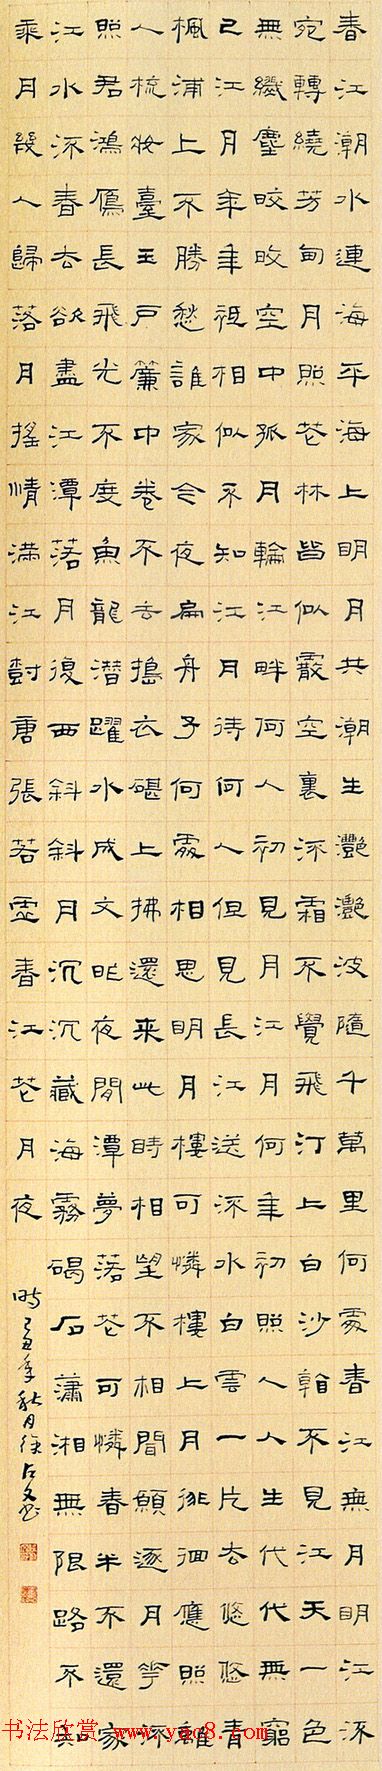 春江潮水連海平海上明月共潮生灩灩波隨千萬里何處春江無月明江流
宛轉繞芳甸月照花林皆似霰空裏流霜不覺飛汀上白沙看不見江天一色
無纖塵皎皎空中孤月輪江畔何人初見月江月何年初照人人生代代無窮
已江月年年祗相似不知江月待何人但見長江送流水白雲一片去悠悠青
楓浦上不勝愁誰家今夜扁舟子何處相思明月樓可憐樓上月徘徊應照離
人梳妝臺玉戶簾中卷不去搗衣碪上拂還來此時相望不相聞願逐月華流
照君鴻鴈長飛光不度魚龍潛躍水成文昨夜閒潭夢落花可憐春半不還家
江水流春去欲盡江潭落月復西斜斜月沉沉藏海霧碣石瀟湘無限路不知
乘月幾人歸落月搖情滿江樹唐張若虛春江花月夜
年秋月
书法欣赏 www.yac8.com